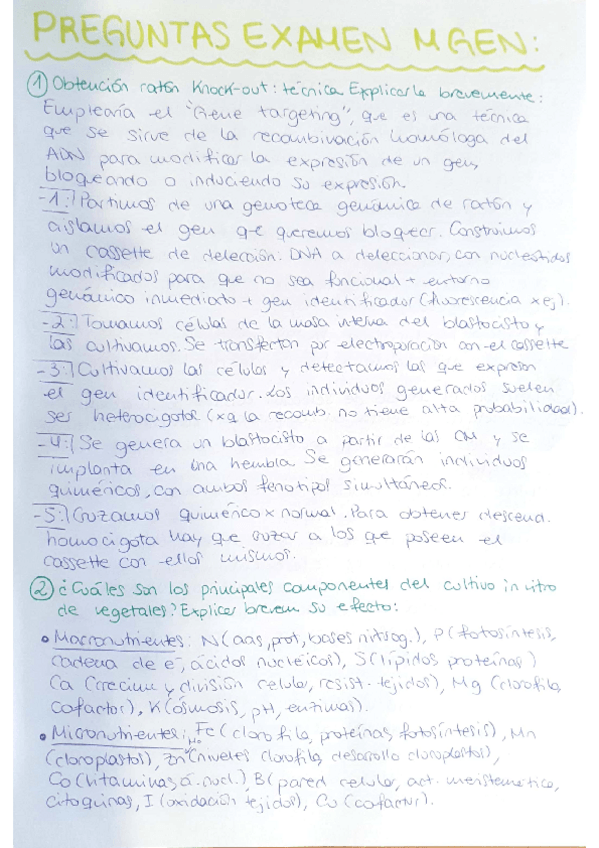 PREGUNTAS EXAMEN MGEN:
① Obtención ratón Knock-out: técnica. Explicarla brevemente:
Emplearía el "Gene targeting", que es una técnica
que se sirve de la recombinación homóloga del
ADN para modificar la expresión de un gen,
bloqueando o induciendo su expresión.
-1:| Partimos de una genoteca genómica de ratón y
aislamos el gen qe queremos bloquear. Construimos
un cassette de delección: DNA a deleccionar, con nucleótidos
modificados para que no sea funcional + entorno
genómico inmediato + gen identificador (fluorescencia x ej).
-2:| Tomamos células de la masa interna del blastocisto y
las cultivamos. Se transfectan por electroporación con el cassette
-3:| Cultivamos las células y detectamos las que expresan
el gen identificador. Los individuos generados suelen
ser heterocigotos (xq la recomb. no tiene alta probabilidad).
-4:| Se genera un blastocisto a partir de las CM y se
implanta en una hembra. Se generarán individuos
quiméricos, con ambos fenotipos simultáneos.
-5:| Cruzamos quimérico x normal. Para obtener descend.
homocigota hay que cruzar a los que poseen el
cassette con ellos mismos.
② ¿Cuáles son los principales componentes del cultivo in vitro
de vegetales? Explicar brevem su efecto:
• Macronutrientes: N (aas, prot, bases nitrog.), P (fotosíntesis,
cadena de e⁻, ácidos nucleicos), S (lípidos proteínas)
Ca (crecim y división celular, resist. tejidos), Mg (clorofila,
cofactor), K (ósmosis, pH, enzimas).
• Micronutrientes: Fe (clorofila, proteínas fotosíntesis), Mn
(cloroplastos), Zn (niveles clorofila, desarrollo cloroplastos),
Co (vitaminas á. nucl.), B (pared celular, act. meristemática,
citoquinas, I (oxidación tejidos), Cu (cofactor).